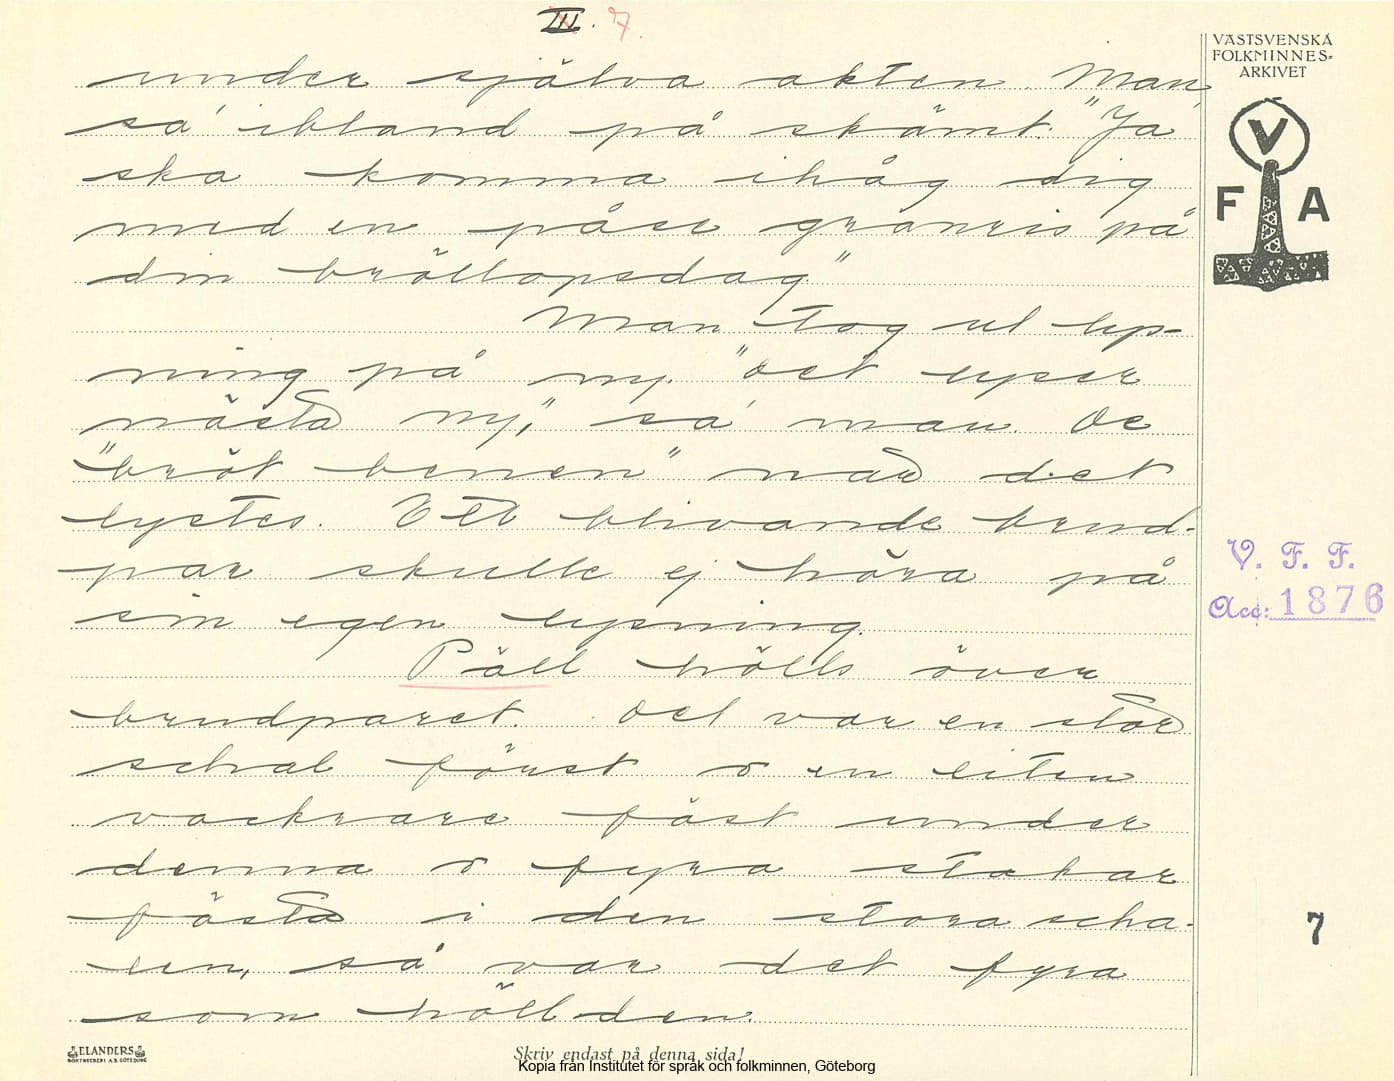 III. 7.
VÄSTSVENSKA
FOLKMINNES-
ARKIVET
V
F A
under själva akten. Man
sa' ibland på skämt. "Ja
ska komma ihåg dig
med en påse granris på
din bröllopsdag"
Man tog ut lys-
ning på ny. "det lyser
nästa ny," sa' man. De
"bröt benen" när det
lystes. Ett blivande brud-
par skulle ej höra på
sin egen lysning.
Päll hölls över
brudparet. Det var en stor
schal först o en liten
vackrare fäst under
denna o fyra stakar
fästa i den stora scha-
len, så var det fyra
som höll den.
V. F. F.
Acc: 1876
7
ELANDERS
BOKTRYCKERI A.B. GÖTEBORG
Skriv endast på denna sida!
Kopia från Institutet för språk och folkminnen, Göteborg